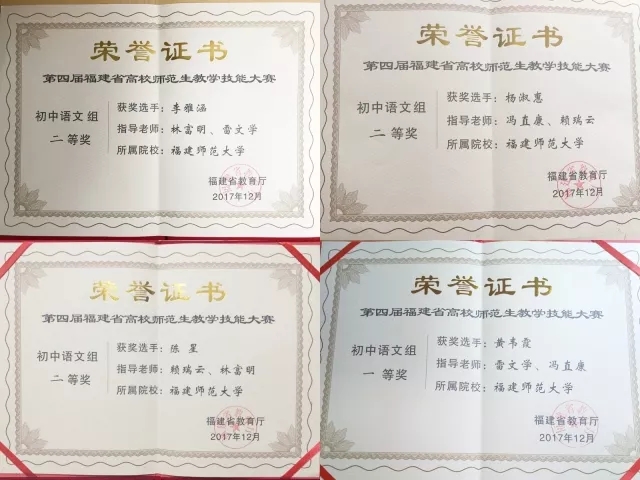 荣誉证书
第四届福建省高校师范生教学技能大赛
初中语文组
二等奖
获奖选手：李雅涵
指导老师：林富明、雷文学
所属院校：福建师范大学
福建省教育厅
2017年12月
荣誉证书
第四届福建省高校师范生教学技能大赛
初中语文组
二等奖
获奖选手：杨淑惠
指导老师：冯直康、赖瑞云
所属院校：福建师范大学
福建省教育厅
2017年12月
荣誉证书
第四届福建省高校师范生教学技能大赛
初中语文组
二等奖
获奖选手：陈星
指导老师：赖瑞云、林富明
所属院校：福建师范大学
福建省教育厅
2017年12月
荣誉证书
第四届福建省高校师范生教学技能大赛
初中语文组
一等奖
获奖选手：黄韦霞
指导老师：雷文学、冯直康
所属院校：福建师范大学
福建省教育厅
2017年12月